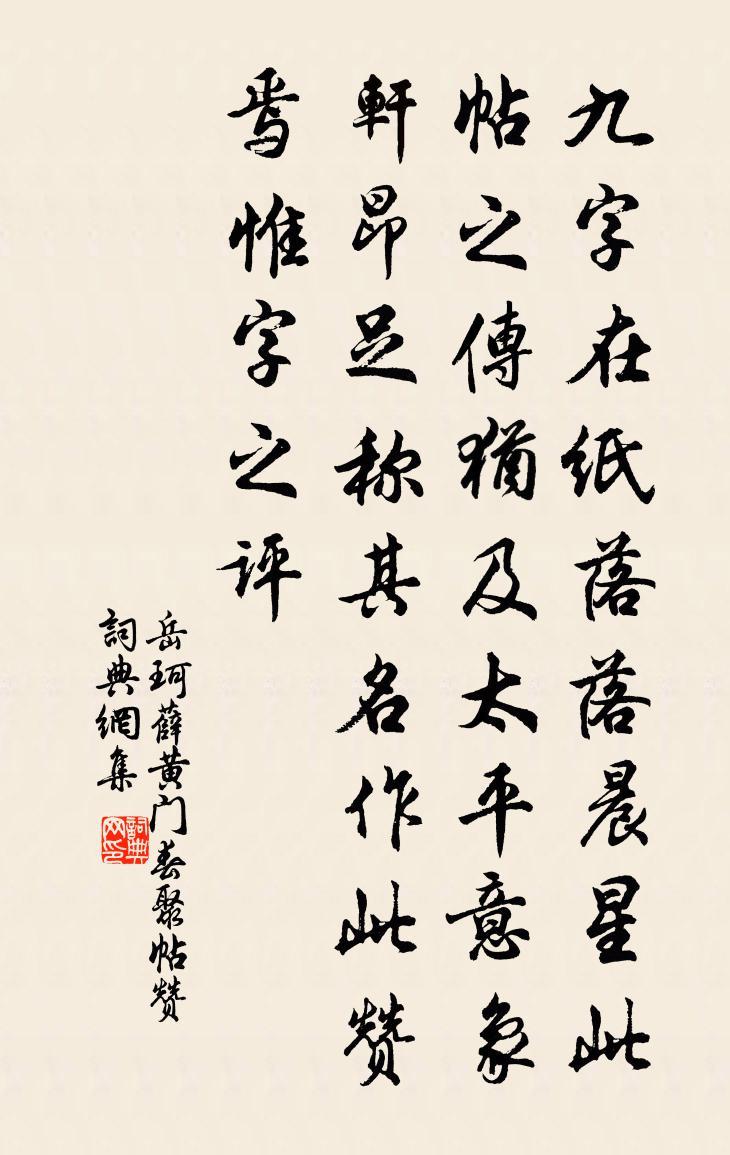 九字在纸落落晨星此
帖之傳猶及太平意象
軒昂足称其名作此赞
焉惟字之评
岳珂薛黄门春聚帖赞
詞典網集
詞典網印